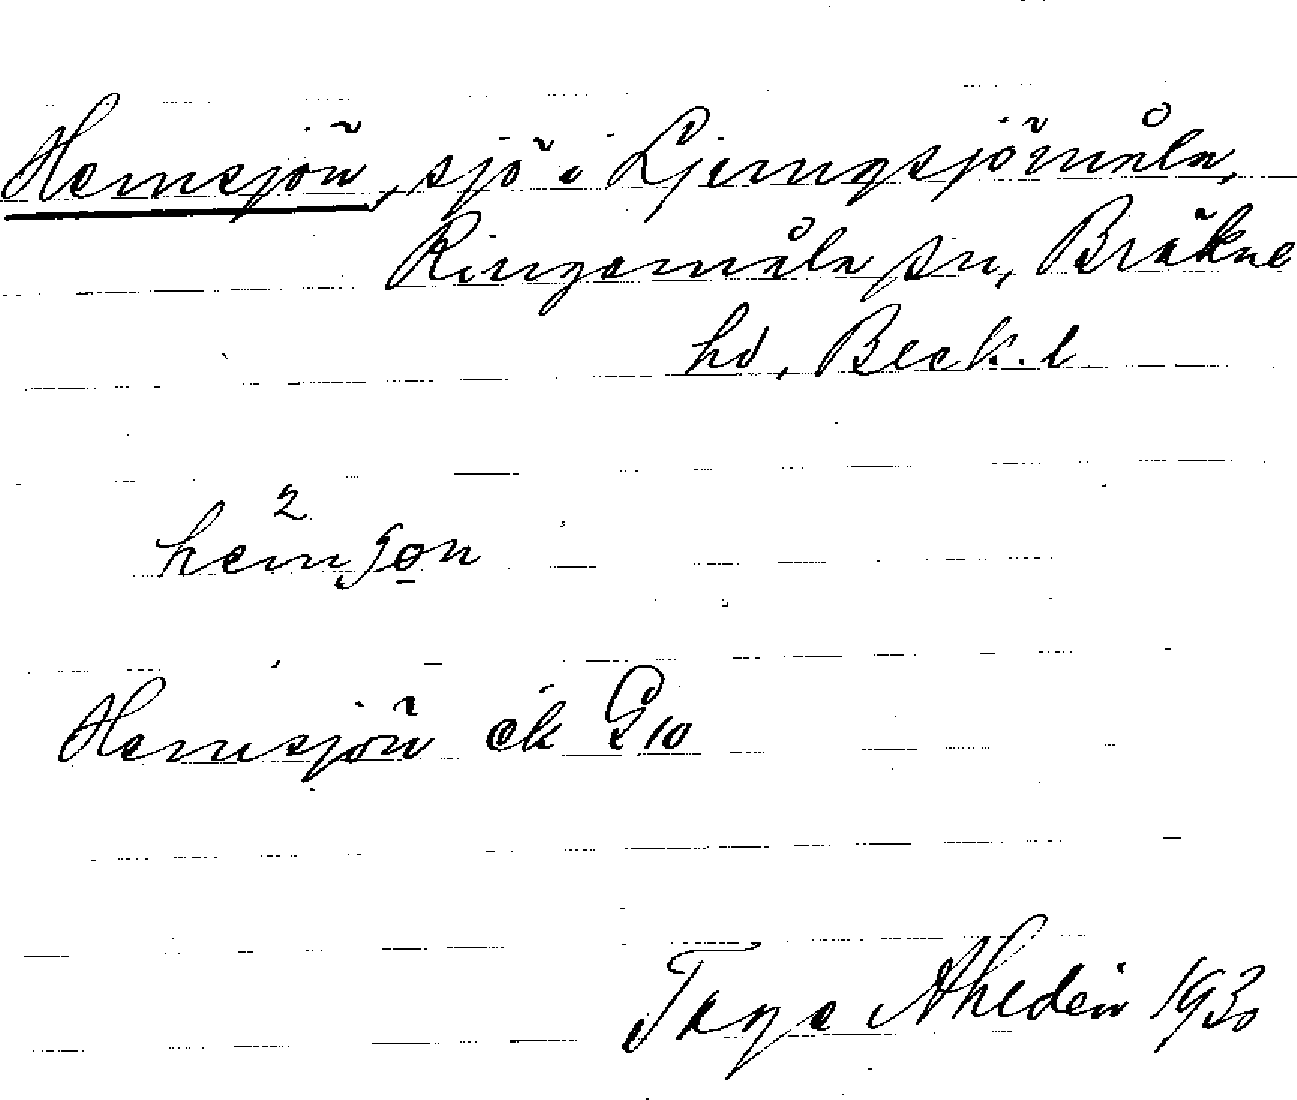 Hemsjön, sjö i Ljungsjömåla,
Ringamåla sn, Bräkne
hd, Blek. l
2
hemʃøn
Hemsjön ek G 10
Tage Ahldén 1930